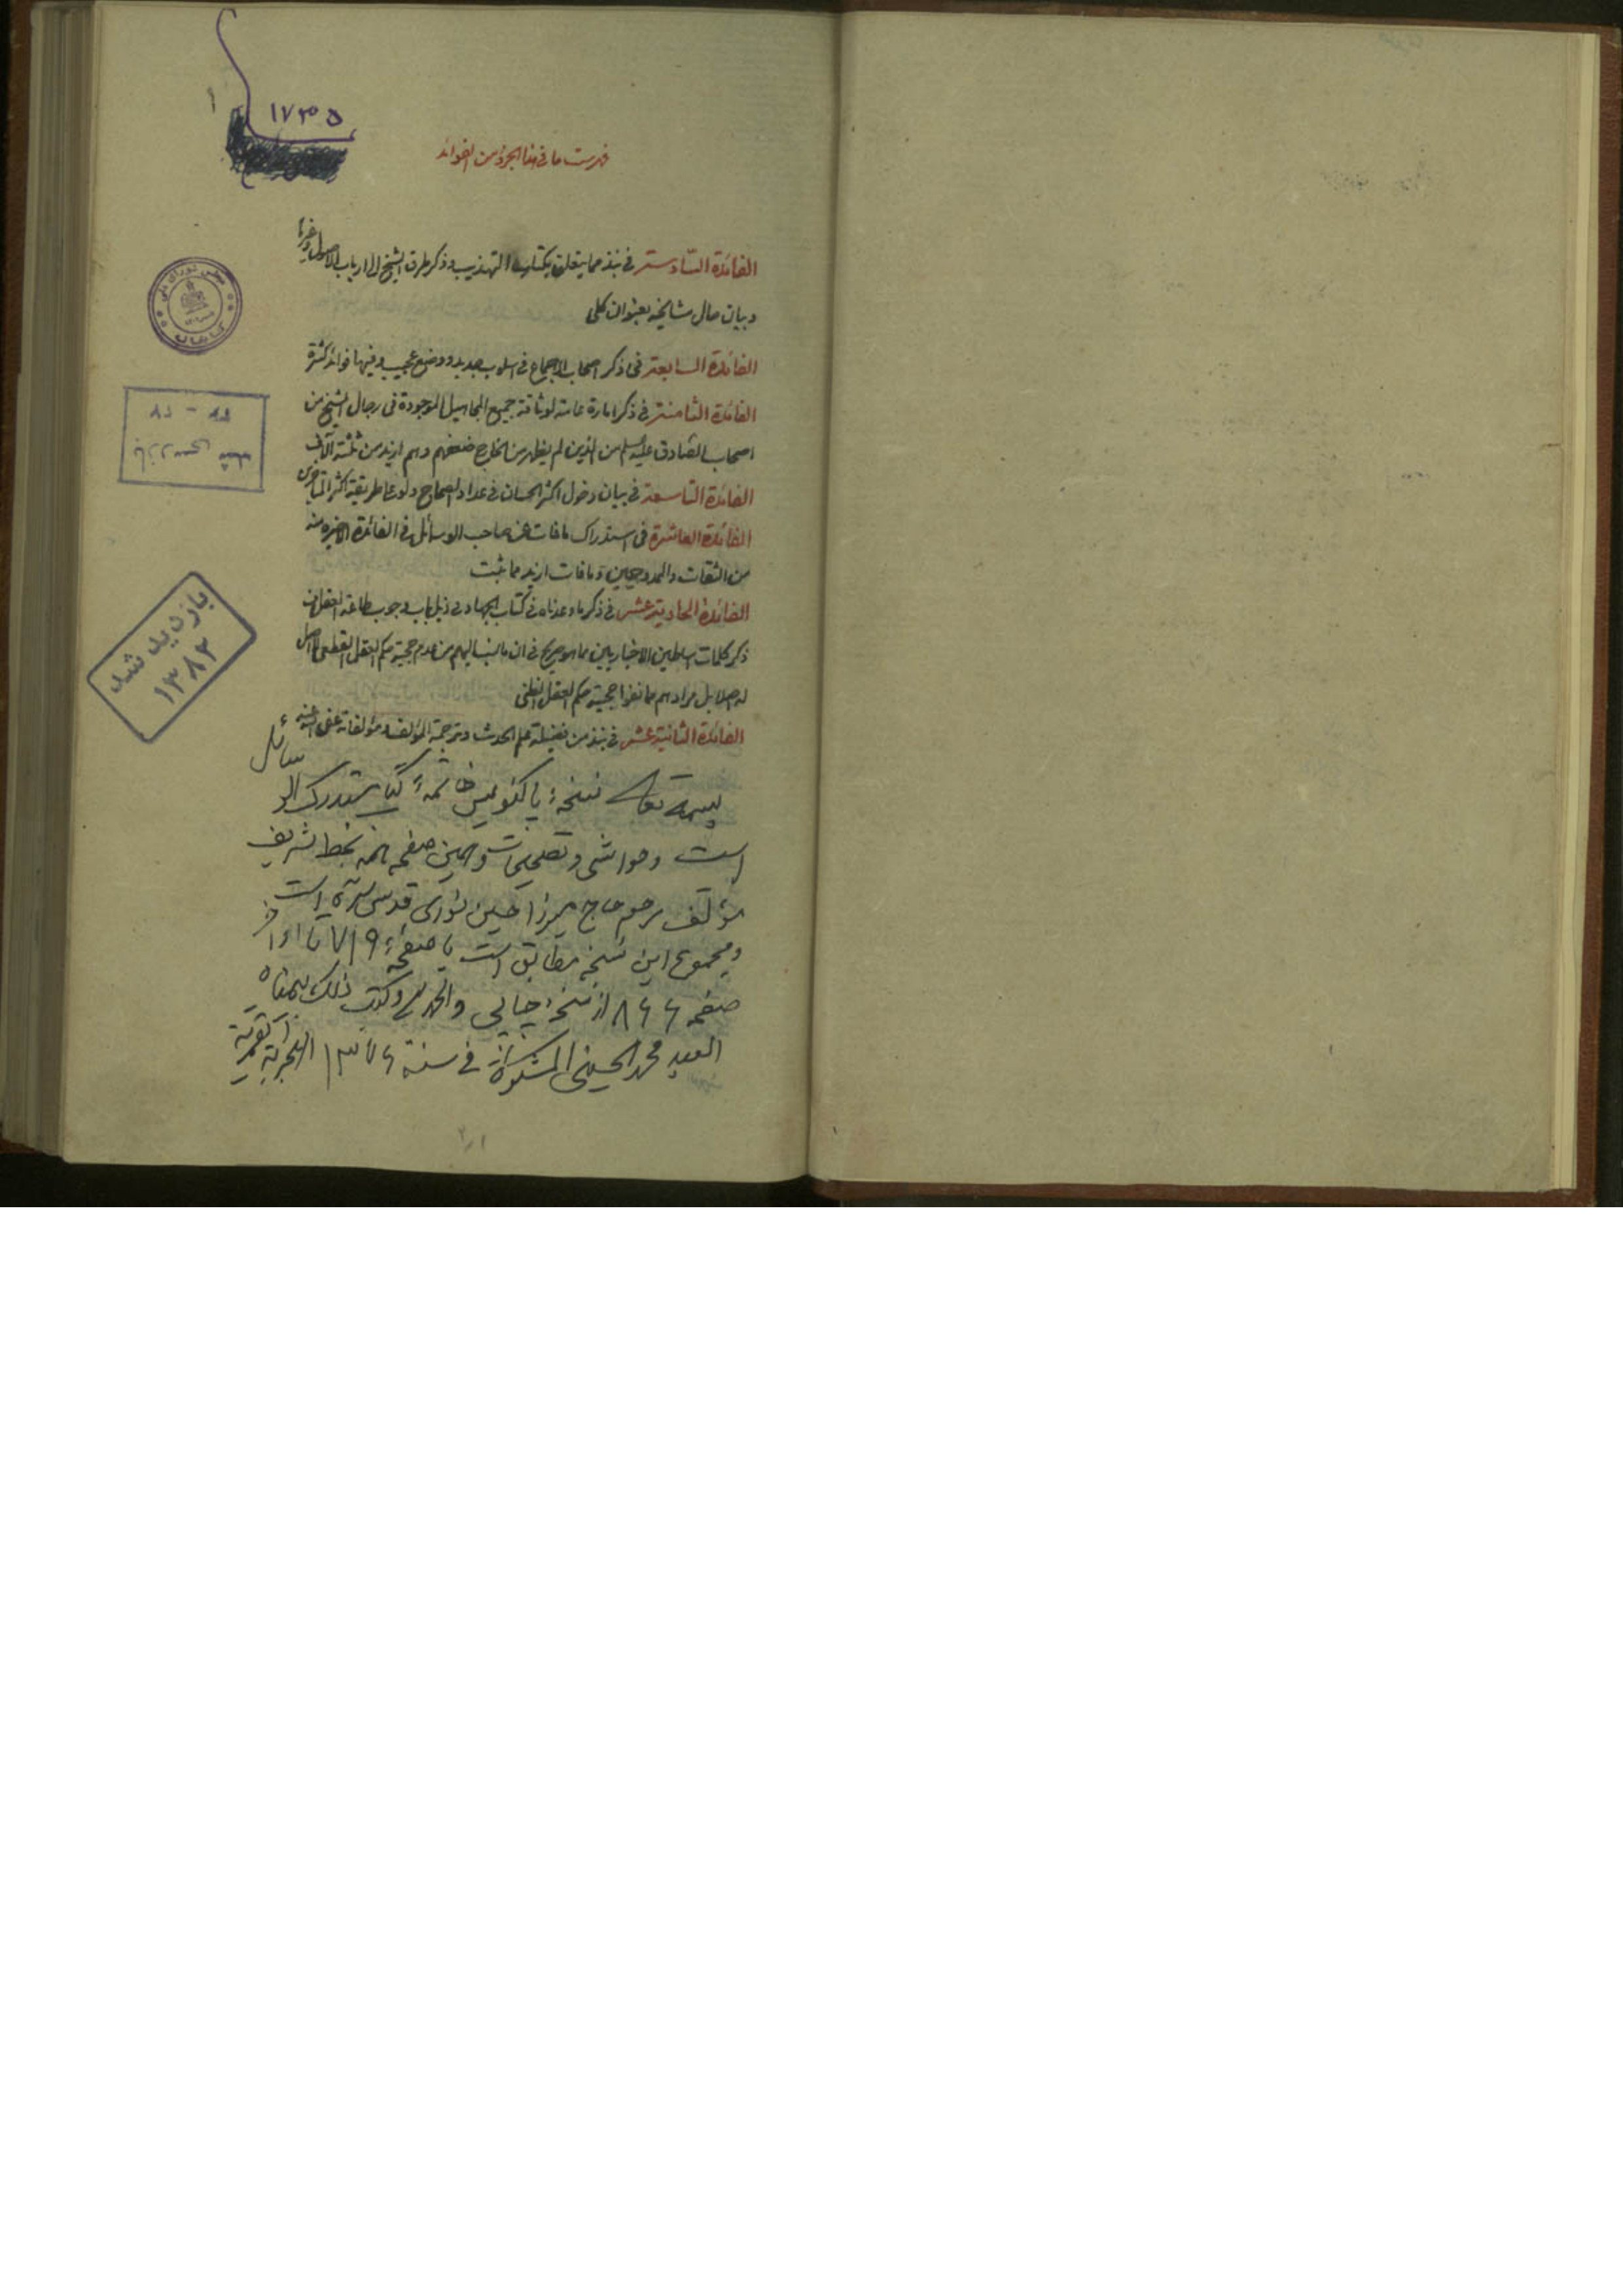 ١
١٧٣٥
فهرست ما في هذا الجزؤ من الفوائد
الفائدة السّادسة في نبذ مما يتعلق بكتاب التهذيب وذكر طرق الشيخ الى ارباب الاصول وغيرها
وبيان حال مشايخه بعنوان كلى
الفائدة السابعة في ذكر اصحاب الاجماع في اسلوب جديد ووضع عجيب وفيها فوائد كثيرة
الفائدة الثامنة في ذكر امارة عامة لوثاقة جميع المجاهيل الموجودة في رجال الشيخ من
اصحاب الصادق عليه السلم من الذين لم يظهر من الخارج ضعفهم وهم ازيد من ثلثة آلاف
الفائدة التاسعة في بيان دخول اكثر الحسان في عداد الصحاح ولو على طريقة اكثر المتاخرين
الفائدة العاشرة في استدراك ما فات عن صاحب الوسائل في الفائدة الاخيرة منه
من الثقات والممدوحين وما فات ازيد مما ثبت
الفائدة الحادية عشر في ذكر ما وعدناه في كتاب الجهاد في ذيل باب وجوب طاعة العقل من
ذكر كلمات اساطين الاخباريين مما هو صريح في ان ما ينسب اليهم من عدم حجية حكم العقل القطعي لا اصل
له اصلا بل مرادهم مما نفوا حجيته حكم العقل الظني
الفائدة الثانية عشر في نبذ من فضيلة علم الحديث وترجمة المؤلف ومؤلفاته عفى الله عنه
بسمه تعالى نسخهٔ پاکنویس خاتمهٔ کتاب مستدرک الوسائل
است وحواشی وتصحیحات وهمین صفحه همه بخط شریف
مؤلف مرحوم حاج میرزا حسین نوری قدس سره است
ومجموع این نسخه مطابق است با صفحهٔ ٧١٩ تا اواخر
صفحه ٨٦٦ از نسخهٔ چاپی والحمد لله وکتب ذلک بیمناه
العبد محمد الحسینی المشکوة في سنة ١٣٧٦ الهجریة القمریة
مجلس شورای ملی
کتابخانه
بازدید شد
١٣٨٢